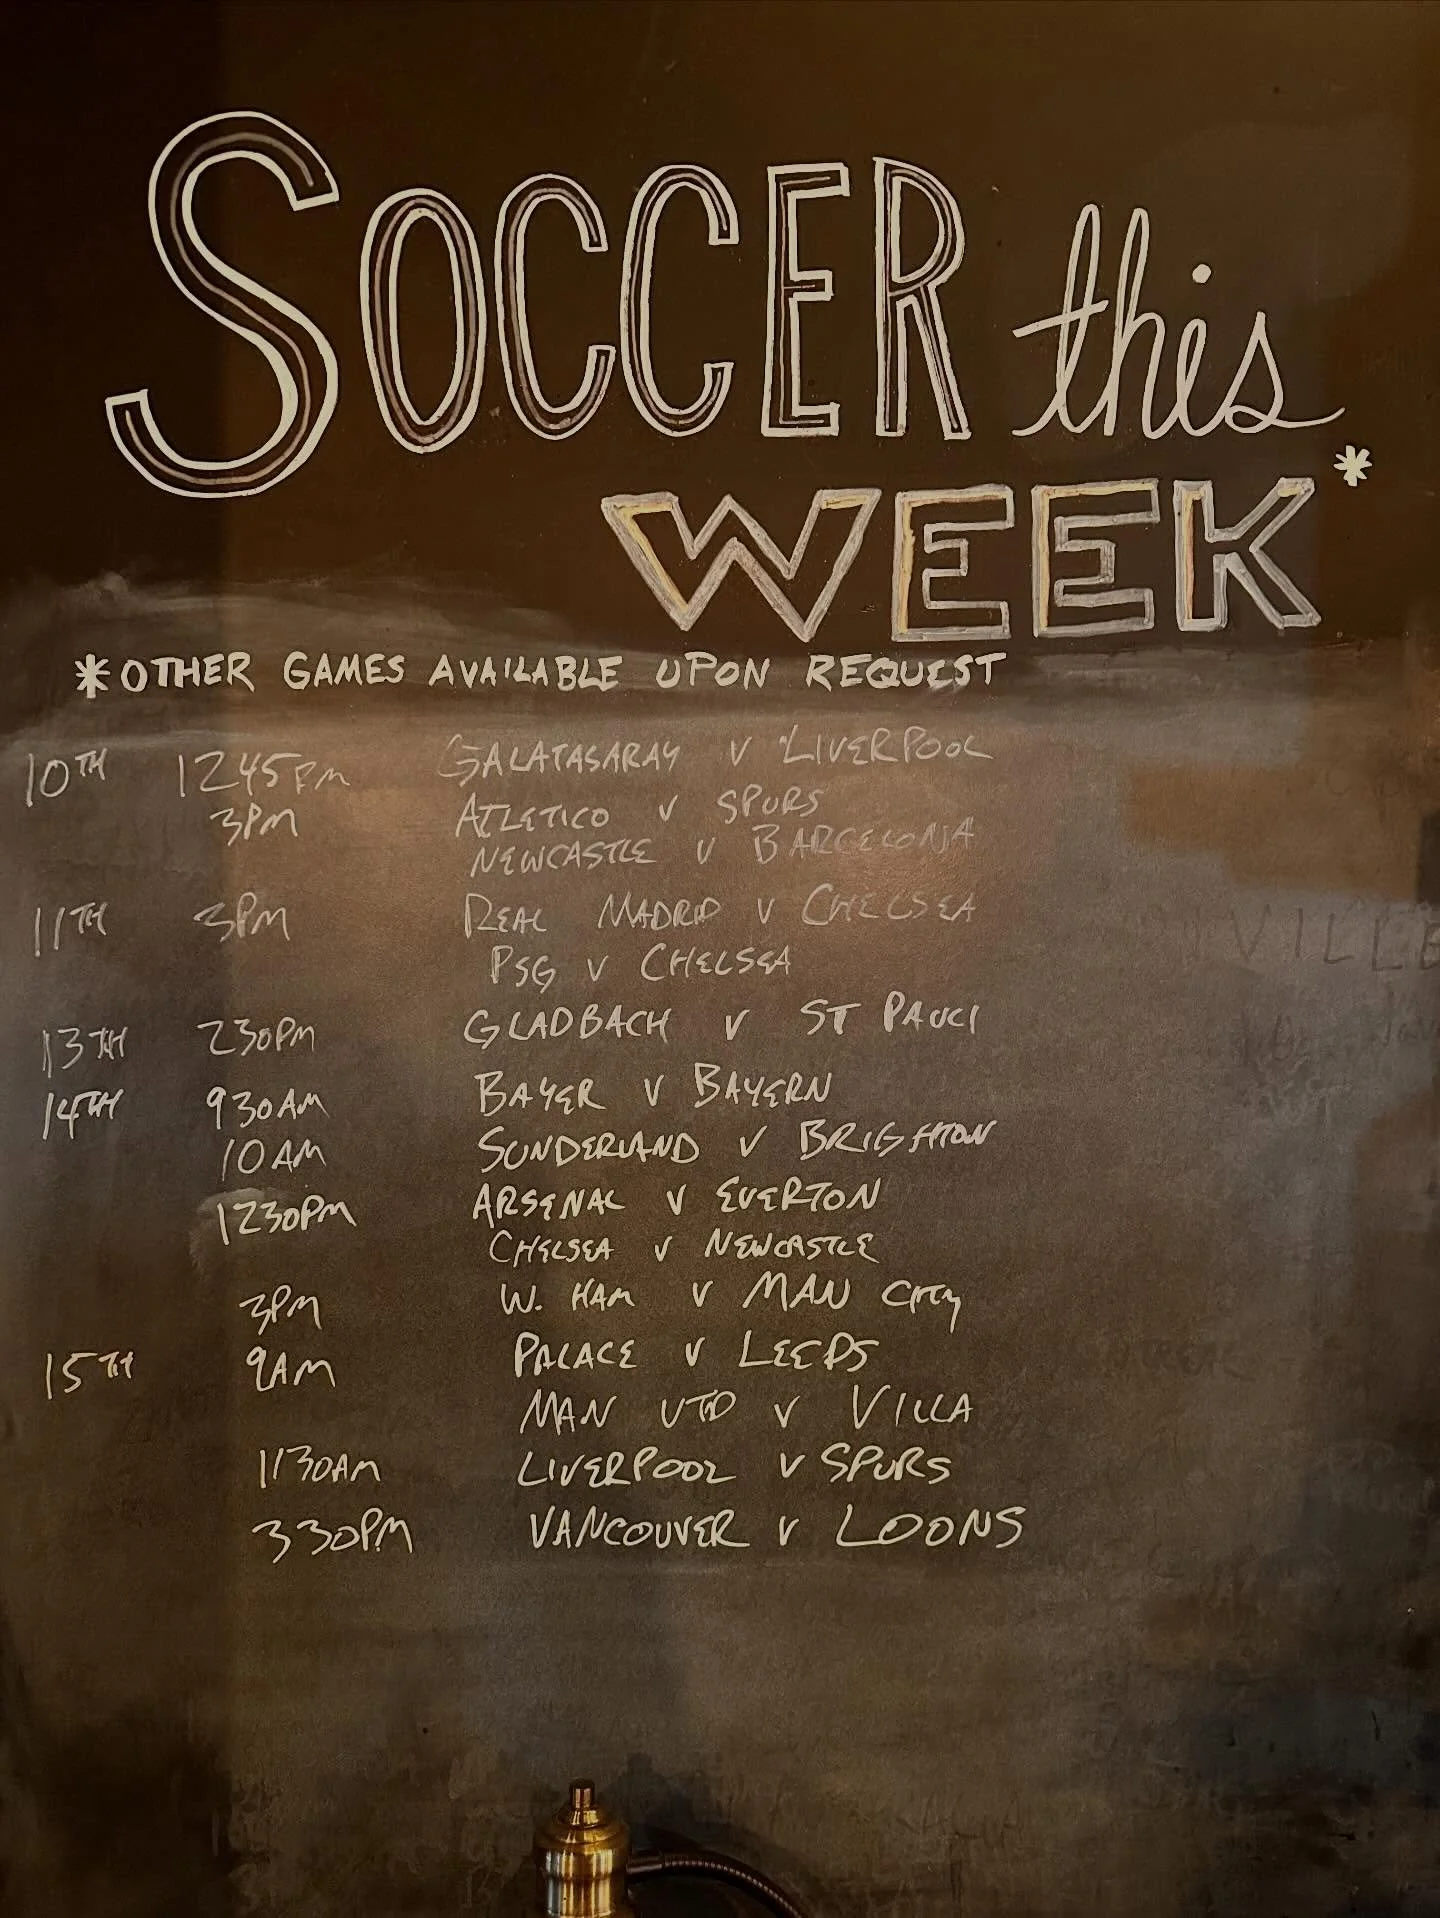 SOCCER this
WEEK*
*OTHER GAMES AVAILABLE UPON REQUEST
10TH 1245PM GALATASARAY V LIVERPOOL
3PM ATLETICO V SPURS
NEWCASTLE V BARCELONA
11TH 3PM REAL MADRID V CHELSEA
PSG V CHELSEA
13TH 230PM GLADBACH V ST PAULI
14TH 930AM BAYER V BAYERN
10AM SUNDERLAND V BRIGHTON
1230PM ARSENAL V EVERTON
CHELSEA V NEWCASTLE
3PM W. HAM V MAN CITY
15TH 9AM PALACE V LEEDS
MAN UTD V VILLA
1130AM LIVERPOOL V SPURS
330PM VANCOUVER V LOONS